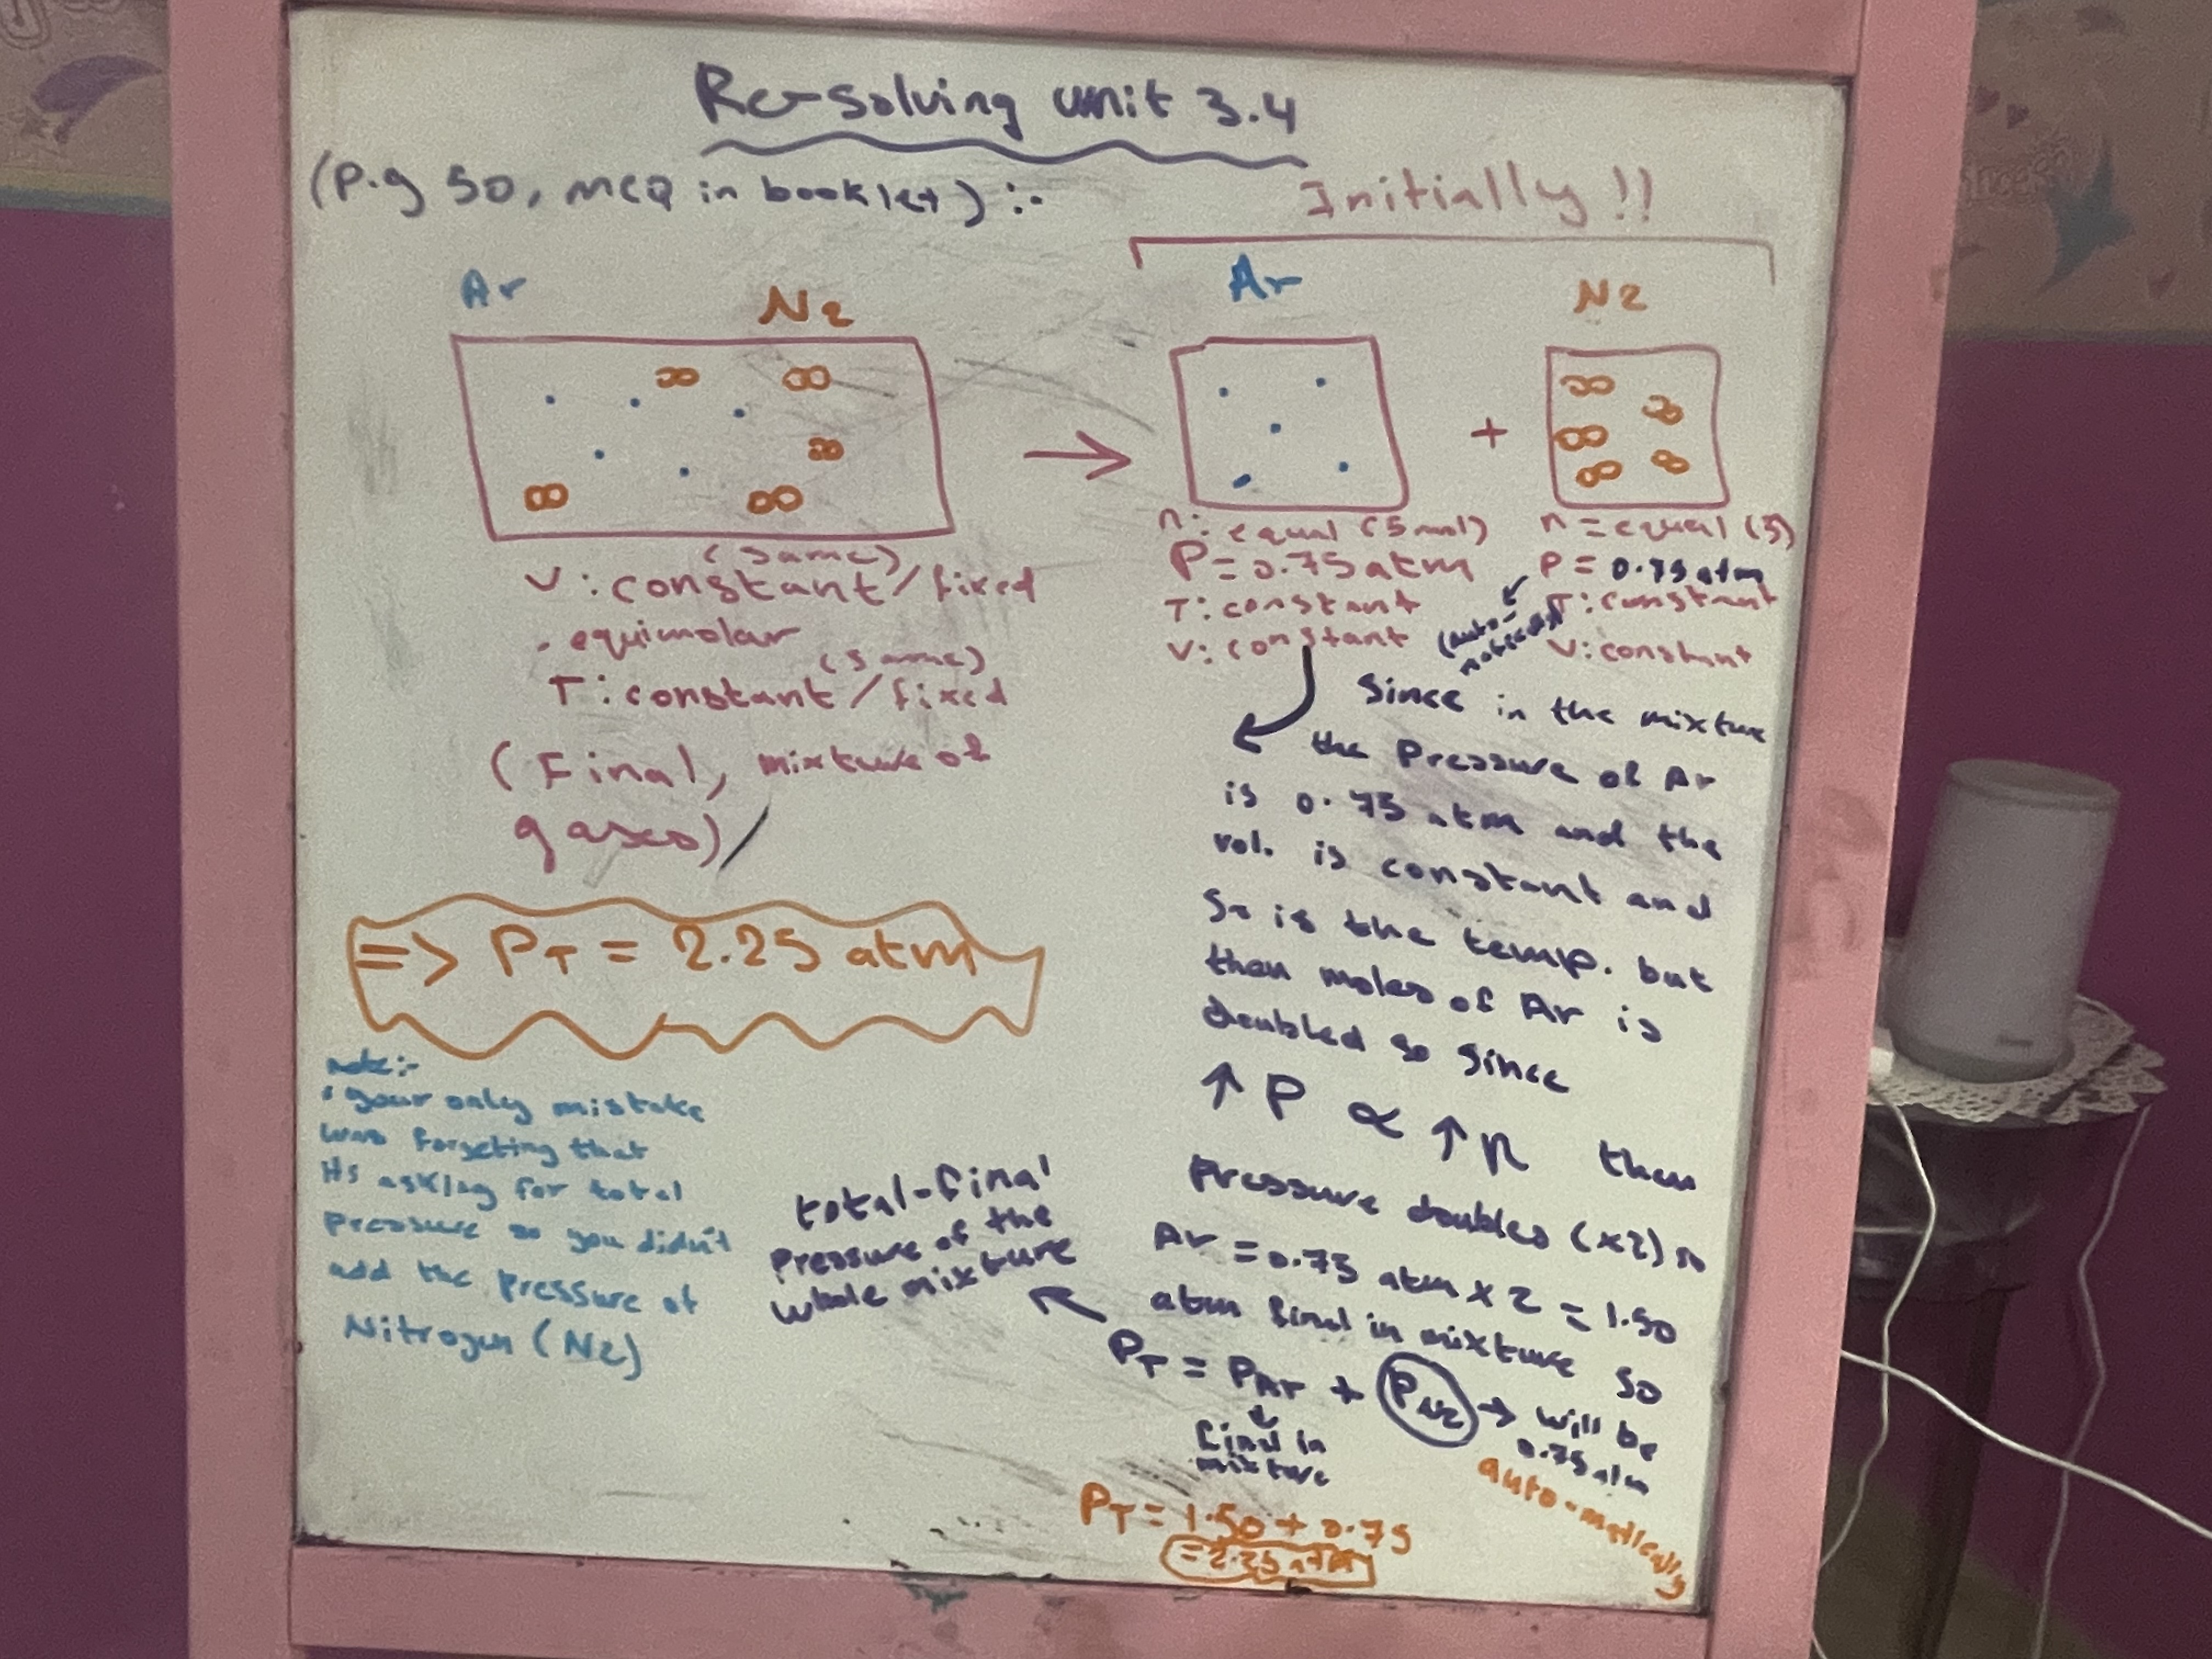 Re-solving unit 3.4
(P.g 50, mcq in booklet) :-
Initially !!
Ar
N2
Ar
N2
+
n: equal (5 mol)
P = 0.75 atm
T: constant
V: constant
n = equal (5)
P = 0.75 atm
T: constant
V: constant
(auto-
(same)
V: constant/fixed
. equimolar
(same)
T: constant/fixed
(Final, mixture of
gases)
=> PT = 2.25 atm
note:-
• your only mistake
was forgeting that
its asking for total
pressure so you didn't
add the pressure of
Nitrogen (N2)
Since in the mixture
the pressure of Ar
is 0.75 atm and the
vol. is constant and
so is the temp. but
then moles of Ar is
doubled so since
↑ P ∝ ↑ n then
pressure doubles (x2) so
Ar = 0.75 atm x 2 = 1.50
atm final in mixture so
PT = PAr + PN2 → will be
0.75 atm
auto-matically
final in
mixture
total-final
pressure of the
whole mixture
PT = 1.50 + 0.75
= 2.25 atm